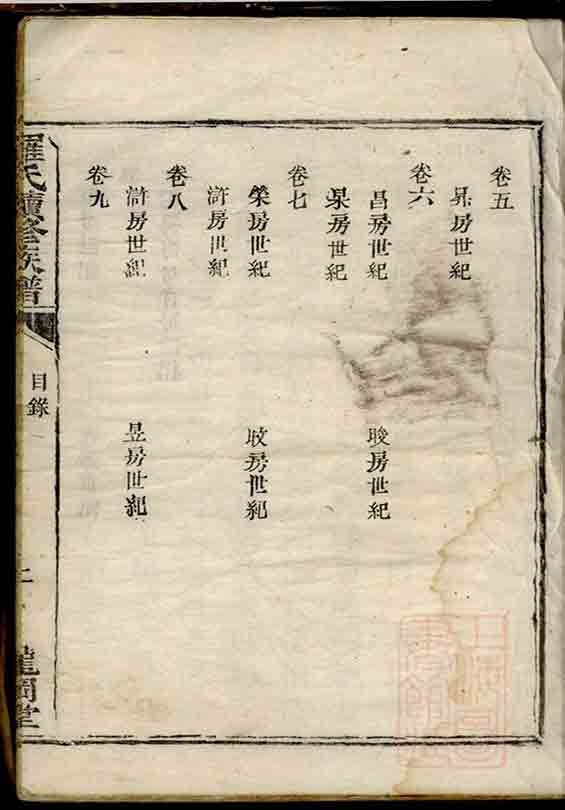 卷五
昇房世紀
卷六
昌房世紀
晙房世紀
杲房世紀
卷七
榮房世紀
旼房世紀
滸房世紀
卷八
滸房世紀
昱房世紀
卷九
羅氏續修族譜
目錄
二